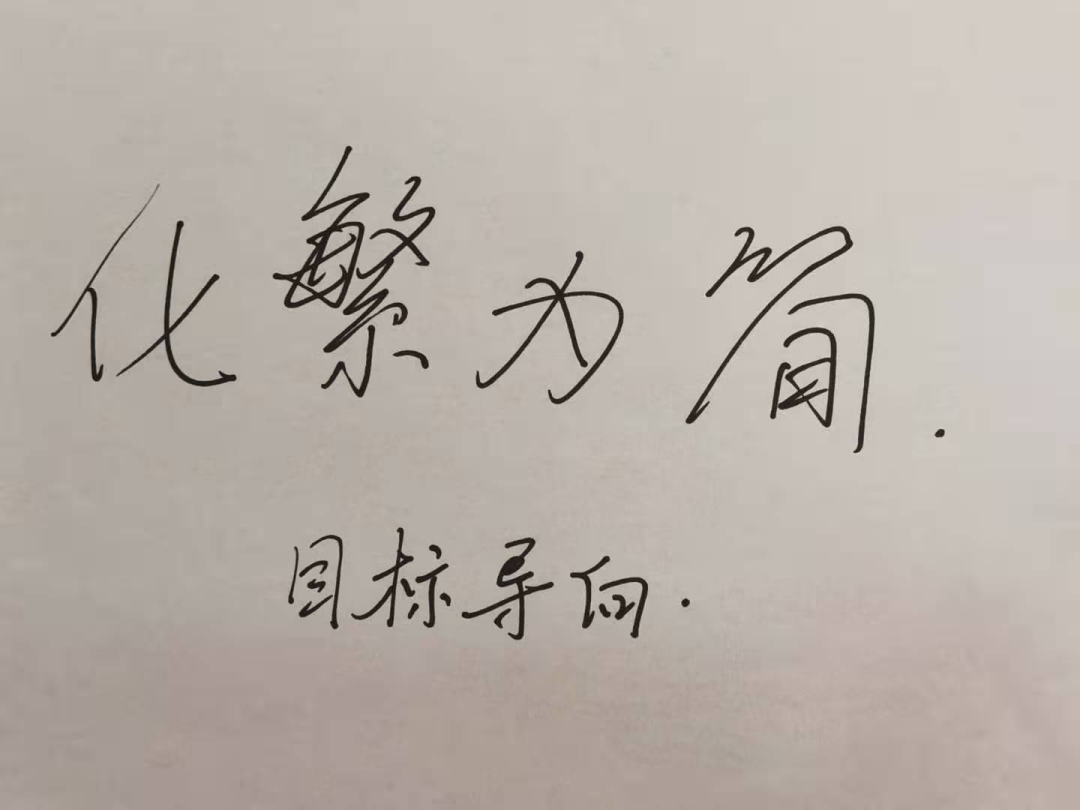 化繁为简.
目标导向.